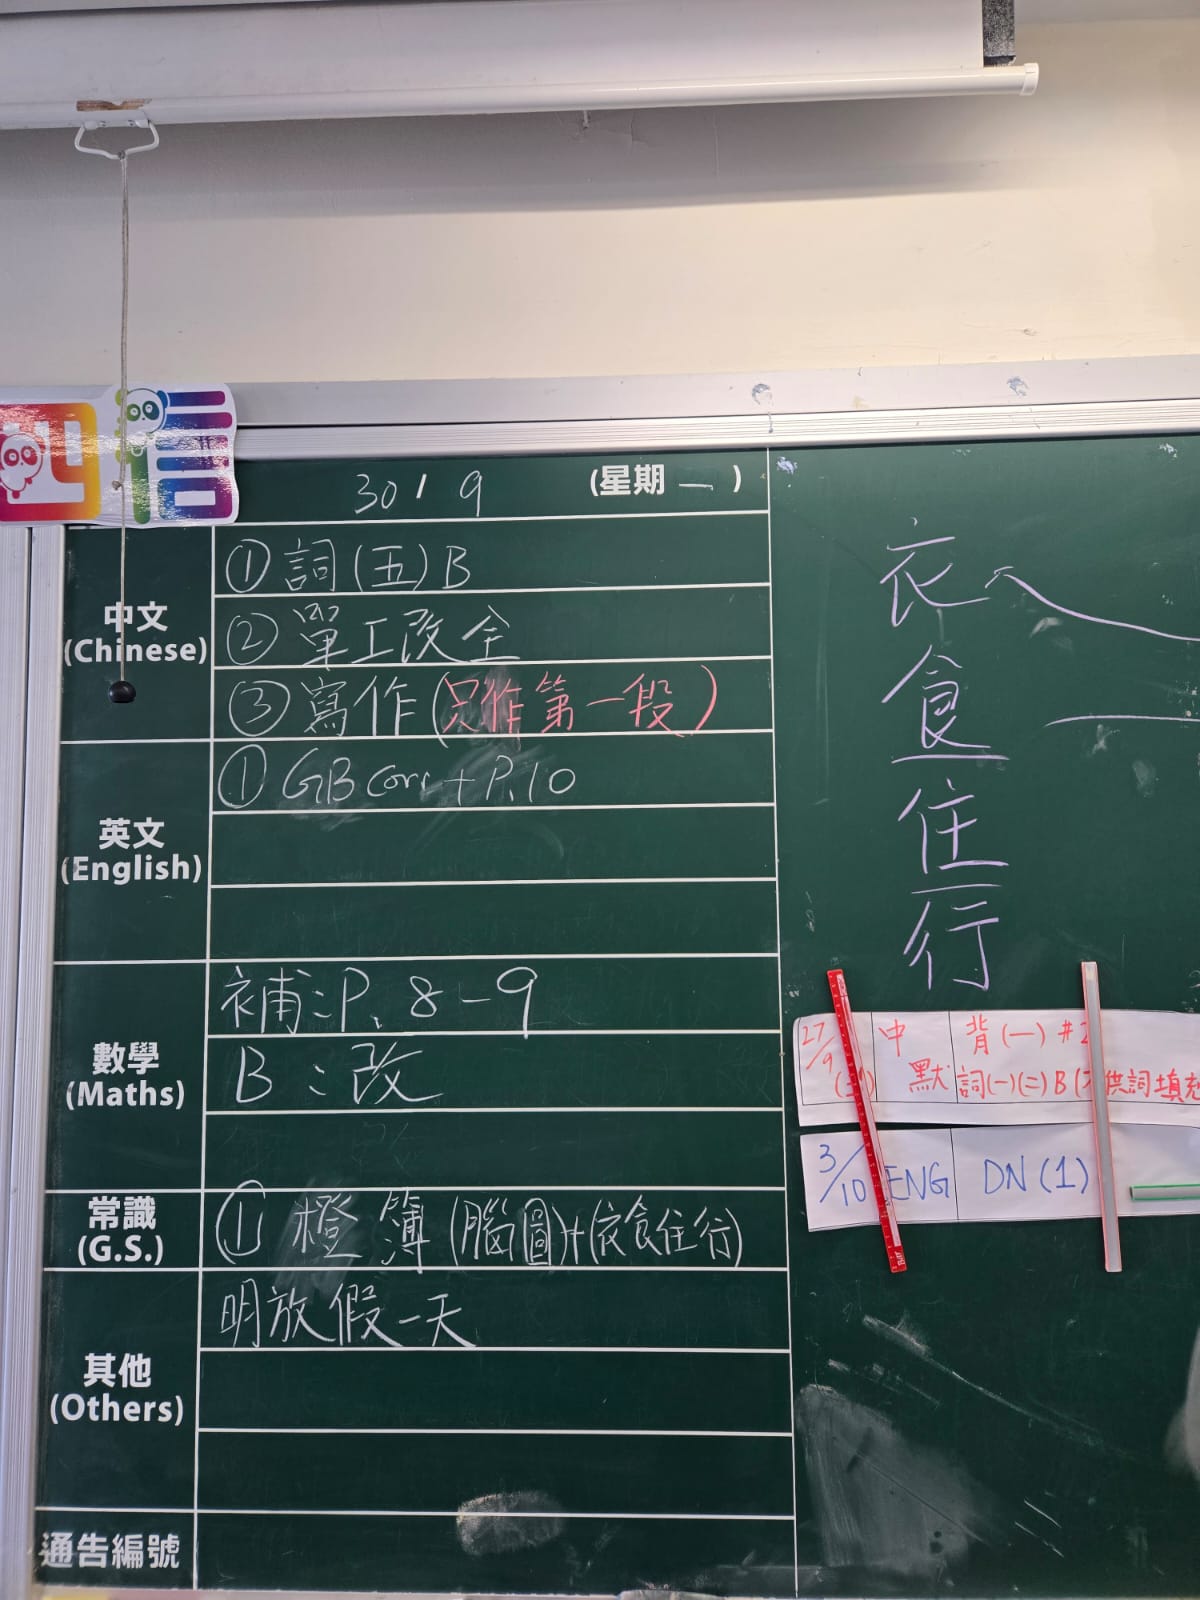 四信
30/9 (星期一)
中文
(Chinese)
①詞(五)B
②單工改全
③寫作(只作第一段)
英文
(English)
①GB corr + P.10
數學
(Maths)
補:P.8-9
B:改
常識
(G.S.)
①橙簿(腦圖)+(衣食住行)
其他
(Others)
明放假一天
通告編號
衣
食
住
行
27/9 中 背(一)#2
默 詞(一)(二)B 供詞填充
3/10 ENG DN(1)